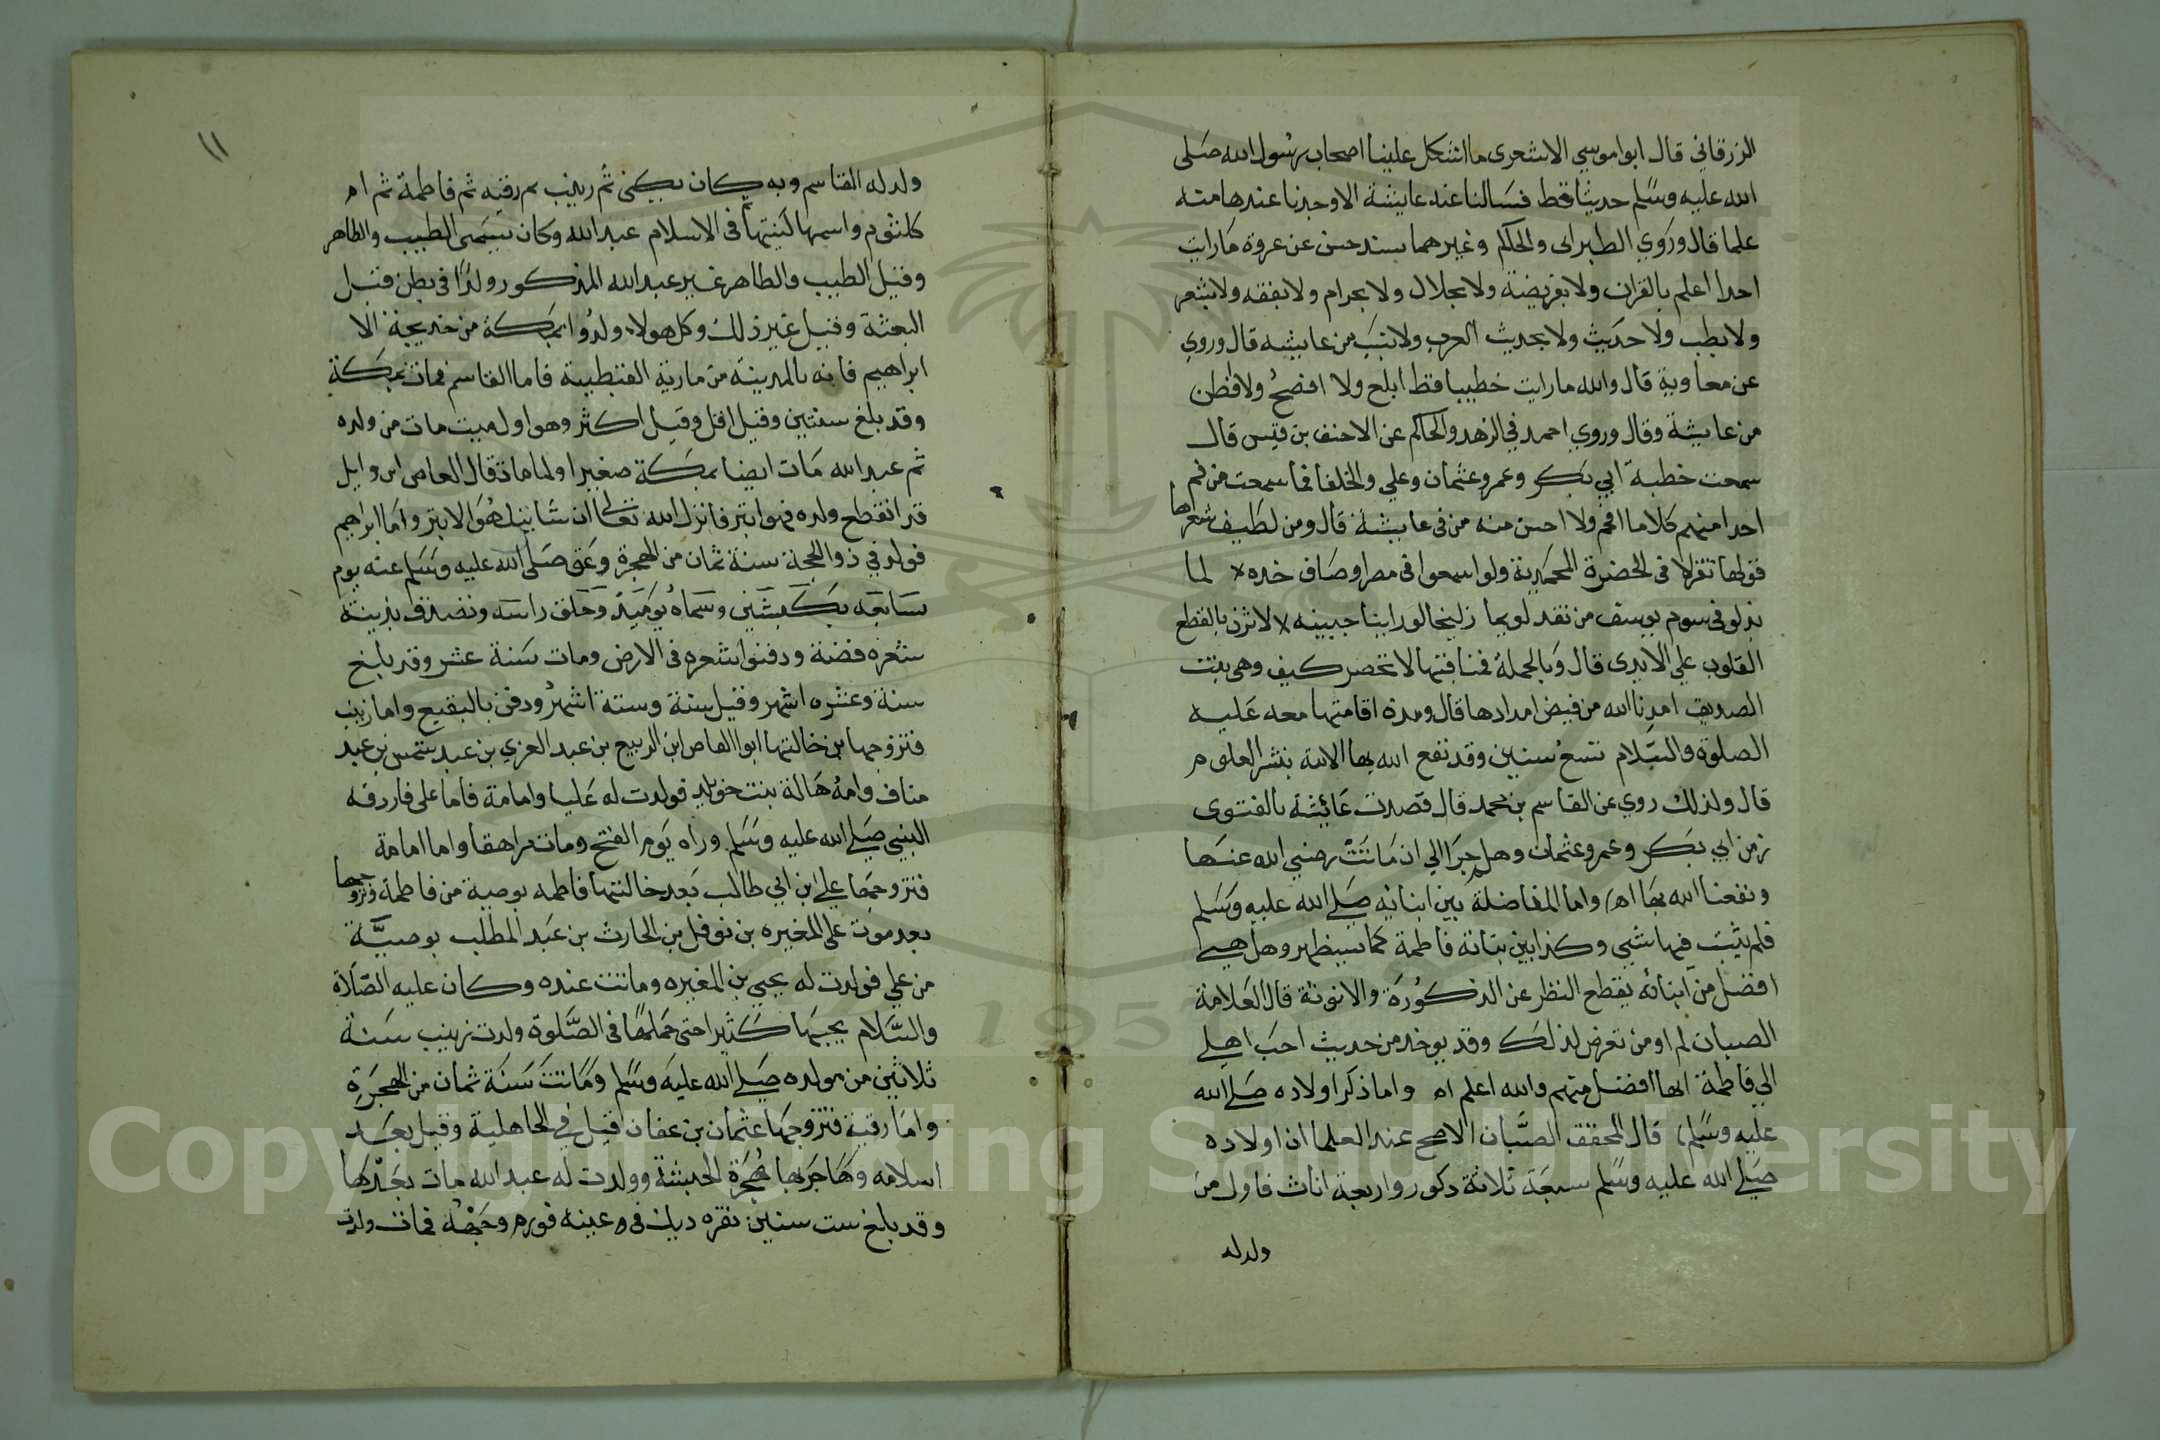 الزرقاني قال ابوا موسي الاشعري ما اشكل علينا اصحاب رسول الله صَلى
الله عليه وسَلم حديثا قط فسَالنا عنه عايشة الا وجدنا عندها منه
علما قال وروَي الطبراني والحاكم وغيرهما بسند حسن عن عروة مَا رايت
احدا اعلم بالقران ولا بفريضة ولا بحلال ولا بحرام ولا بفقه ولا بشعر
ولا بطب ولا حديث ولا بحديث العرب ولا نسَب من عايشه قال وروي
عن معاوية قال والله ما رايت خطيبا قط ابلغ ولا افصحُ ولا افطن
من عايشة وقال وروي احمد في الزهد والحاكم عن الاحنف بن قيس قال
سمعت خطبة ابي بكر وعمر وعثمان وعلي والخلفا فما سمعت من فم
احد منهم كلاما افخم ولا احسن منه من في عايشة قال ومن لطيف شعراها
قولها تغزلا في الحضرة المحمدية ولو اسمعوا في مصر اوصَاف خده لما
بذلو في سوم يوسف من نقد لويما زليخا لو راينا جبينه لاثرن بالقطع
القلوب علي الايدي قال وَبالجملة فمناقبها لا تحصر كيف وهي بنت
الصديق امدنا الله من فيض امدادها قال ومدة اقامتها معه عَليه
الصلوة والسَّلام تسعُ سنين وقد نفع الله بها الامة بنشر العلوم
قال ولذلك روي عن القاسم بن محمد قال قصدت عَائشة بالفتوى
زمن ابي بَكر وعمر وعثمان وهلم جرَا الي ان مَاتَتْ رضيي الله عنها
ونفعنا الله بهَا اه واما المفاضلة بَين ابنائه صَلي الله عليه وسَلم
فلم يثبت فيها شيي وكذا بين بناته فاطمة كما سيظهر وهل هي
افضل من ابنائه بقطع النظر عن الذكُورَة والانوثة قال العَلامة
الصبان لم ار من تعرض لذلك وقد يوخذ من حديث احبَ اهلي
الي فاطمة انها افضل منهم والله اعلم اه واما ذكر اولاده صَلي الله
عليه وسَلم قال المحقق الصَّبان الاصح عند العلما ان اولاده
صَلي الله عليه وسَلم سبعَة ثلاثة ذكور واربعة اناث فاول من
ولد له
١١
ولد له القاسم وبه كان يكني ثم زينب ثم رقيه ثم فاطمة ثم ام
كلثوم واسمها كنيتها في الاسلام عبد الله وكان يسَمى الطيب والطاهر
وقيل الطيب والطاهر غير عبد الله المذكور ولدَا في بطن قبل
البعثة وقيل غير ذلك وكل هولاء ولدُوا بمَكة من خديجة الا
ابراهيم فانه بالمدينة من مارية القبطية فاما القاسم فمات بمكة
وقد بلغ سنتين وقيل اقل وقيل اكثر وهو اول ميت مات من ولده
ثم عبد الله مَات ايضا بمكة صغيرا ولما مات قال العاص ابن وايل
قد انقطع ولده فهو ابتر فانزل الله تعَالي ان شانيك هُوَ الابتر واما ابراهيم
فولد في ذوا الحجة سنة ثمان من الهجرة وعَق صَلى الله عليه وسَلم عنه يوم
سَابعَه بكَبشَين وسَماهُ يومَيذ وحَلق راسَه وتصدق بزنة
شعره فضة ودفنوا شعره في الارض ومات سَنة عشر وقد بلغ
سنة وعشره اشهر وقيل سنة وستة اشهرُ ودفن بالبقيع واما زينب
فتزوجها ابن خالتها ابوا العاص ابن الربيع بن عبد العزي بن عبد شمس بن عبد
مناف وامهُ هَالة بنت خويلد فولدت له عَليا وامامة فاما علي فاردفه
النبيي صَلي الله عليه وسَلم وراه يَوم الفتح ومات مراهقا واما امامة
فتزوجهَا علي ابن ابي طالب بَعد خالتها فاطمه بوصية من فاطمة وتزوجها
بعد موت علي المغيره بن نوفل بن الحارث بن عَبد المطلب بوصيَّة
من علي فولدت له يحيي بن المغيره وماتت عنده وكان عليه الصَّلاة
والسَّلام يحبهَا كَثيرا حتي حَملهَا في الصَّلوة ولدت زينب سَنة
ثلاثين من مولده صَلي الله عليَه وسَلم ومَاتت سَنَة ثمان من الهجرَةِ
وامَا رقية فتزوجهَا عثمان بن عفان قيل في الجاهلية وقيل بعَد
اسلامه وهَاجر بها هُجرَة الحبشة وولدت له عبد الله مات بعَدها
وقد بلغ ست سنين نقره ديك في عينه فورم وجَههُ فمات ولدت